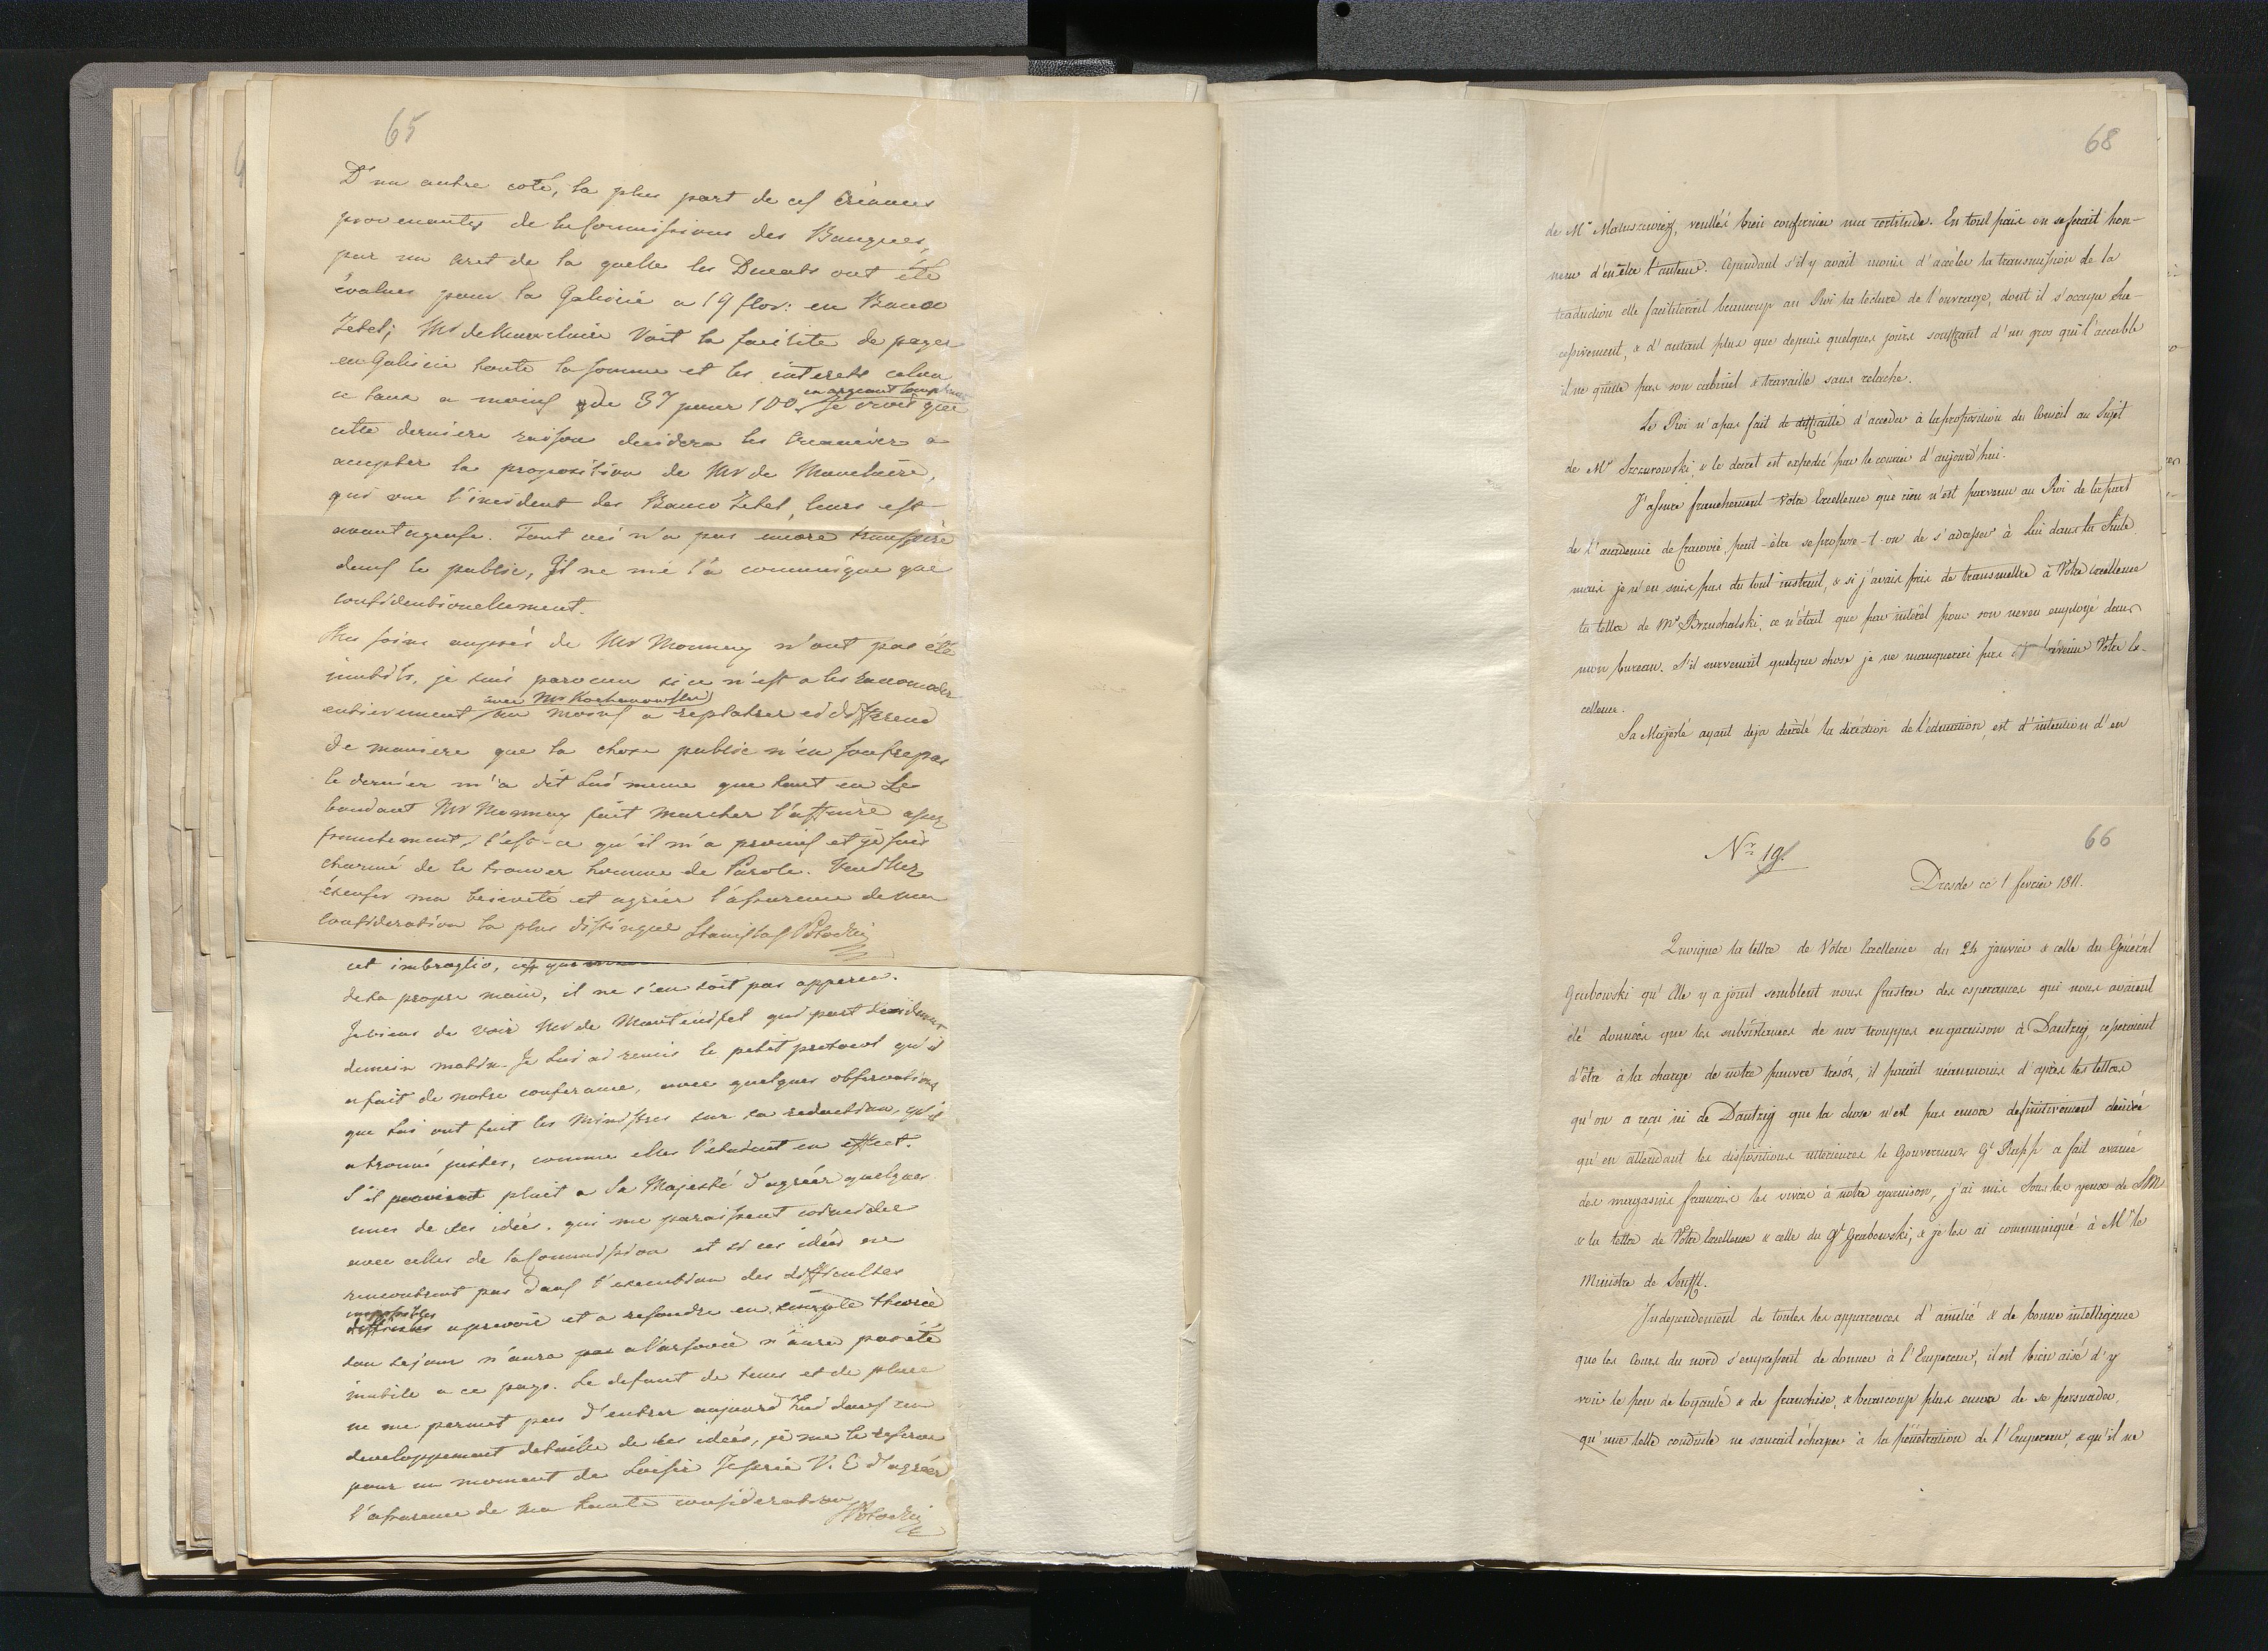 65
D'un autre coté, la plus part de ces Créances
provenantes de la Commissions des Banques,
par un aret de la quelle les Ducats ont été
évalues pour la Galicie a 19 flor: en Banco
Zetel; Mr de voit la facilite de payer
en Galicie toute la somme et les interets selon
ce taux a moins de 37 pour 100 en argeant comptant Je crois que
cette derniere raison decidera les Creancier a
accepter la proposition de Mr de
qui vue l'incident des Banco Zetel, leurs est
avantageuse. Tout ceci n'a pas encore transpiré
dans le public, Il ne me l'a communiqué que
confidentionellement.
Mes soins auprès de Mr Monney n'ont pas été
inutils, je suis parvenu si ce n'est a les raccomoder
entierement avec Mr Kochanowski au moins a replatrer ce différend
de maniere que la chose public n'en soufre pas
le dernier m'a dit lui meme que tout en le
boudant Mr Monney fait marcher l'affaire assez
franchement, c'est-ce qu'il m'a promis et je suis
charmé de le trouver homme de Parole. Veuillez
éxcuser ma brieveté et agréer l'assurence de ma
consideration la plus distinguée Stanislas Potocki
cet imbroglio,
de sa propre main, il ne s'en soit pas apperçu.
Je viens de voir Mr de Manteuffel qui part decidement
demain matin. Je lui ai remis le petit protocol qu'il
a fait de notre conferance, avec quelques observations
que lui ont fait les Ministres sur sa redaction, qu'il
a trouvé justes, comme elles l'etoient en effect.
S'il plait a Sa Majesté d'agréer quelques
unes de ses idées. qui me paraissent coincider
avec celles de la Commission et si ces idées ne
rencontrent pas dans l'execution des difficultes
impossibles a prevoir et a resoudre en simple théorie
son sejour n'aura pas a Varsovie n'aura pas été
inutile a ce pays. Le defaut de tems et de place
ne me permet pas d'entrer aujourd'hui dans un
developpement detaillé de ses idées, je me le reserve
pour un moment de loisir Je prie V. E d'agréer
l'assurance de ma haute consideration
SPotocki
68
de Mr Matuszewicz, veuilléz bien confirmer ma certitude. En tout païs on se ferait hon-
neur d'en être l'auteur. Cependant s'il y avait moïen d'accéler la transmission de la
traduction elle faciliterait beaucoup au Roi la lecture de l'ouvrage, dont il s'occupe suc-
cessivement, & d'autant plus que depuis quelques jours souffrant d'un gros qui l'accable
il ne quitte pas son cabinet & travaille sans relache.
Le Roi n'a pas fait de difficulté d'acceder à la proposition du Conseil au Sujet
de Mr Szczurowski & le decret est expedié par le courier d'aujourd'hui.
J'assure franchement Votre Excellence que rien n'est parvenu au Roi de la part
de l'academie de Cracovie, peut-être se propose-t-on de s'adresser à Lui dans la Suite
mais je n'en suis pas du tout instruit, & si j'avais pris de transmettre à Votre Excellence
la lettre de Mr Brzuchalski, ce n'était que par intérêt pour son neveu employé dans
mon bureau. S'il survenait quelque chose je ne manquerai pas d'en prévenir Votre Ex-
cellence.
Sa Majesté ayant deja decrété la direction de l'éducation, est d'intention d'en
66
Nro 19.
Dresde ce 1 fevrier 1811.
Quoique la lettre de Votre Excellence du 24 janvier & celle du Général
Grabowski qu'Elle y a joint semblent nous frustrer des esperances qui nous avaient
été données que les subsistances de nos trouppes en garnison à Dantzig, cesseroient
d'être à la charge de notre pauvre tresór, il parait néanmoins d'après les lettres
qu'on a reçu ici de Dantzig que la chose n'est pas encore definitivement décidée
qu'en attendant les dispositions ulterieures le Gouverneur Gl Rapp a fait avancé
des magasins francais les vivres à notre garnison, j'ai mis Sous les yeux de SM
& la lettre de Votre Excellence & celle du Gl Grabowski, & je les ai communiqué à Mr le
Ministre de Senfft.
Independement de toutes les apparences d'amitié & de bonne intelligence
que les Cours du nord s'empressent de donner à l'Empereur, il est bien aisé d'y
voir le peu de loyauté & de franchise, & beaucoup plus encore de se persuader,
qu'une telle conduite ne saurait échaper à la pénétration de l'Empereur, & qu'il ne